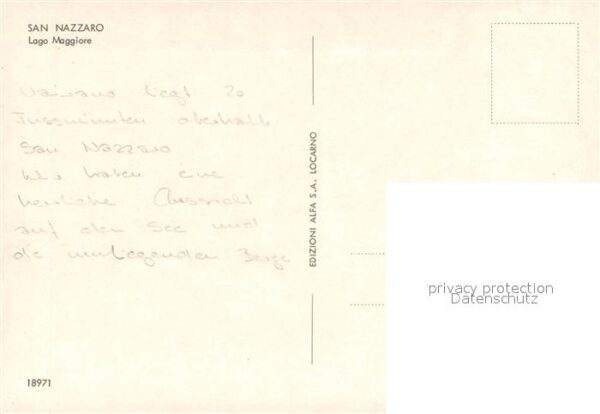 SAN NAZZARO
Lago Maggiore
Vairano liegt 20
Fussminuten oberhalb
San Nazzaro
Wir haben eine
herrliche Aussicht
auf den See und
die umliegenden Berge
EDIZIONI ALFA S.A. LOCARNO
privacy protection
Datenschutz
18971